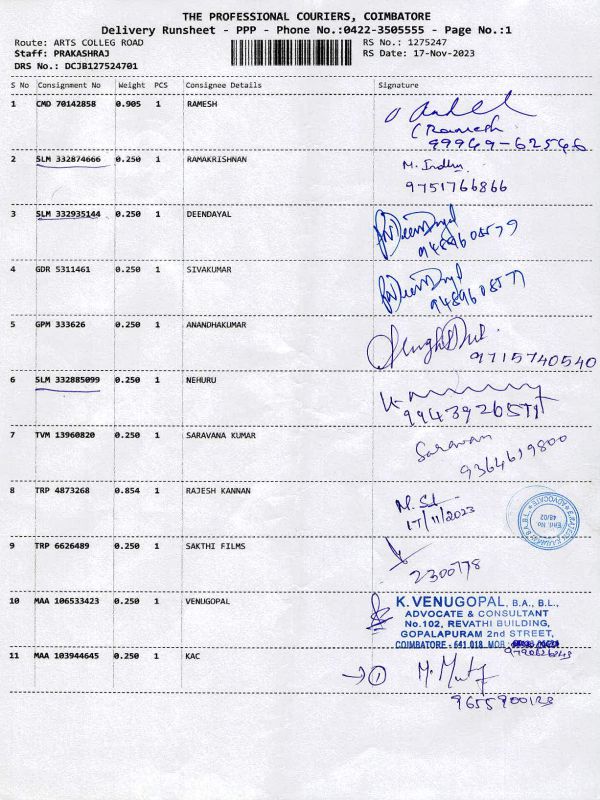 THE PROFESSIONAL COURIERS, COIMBATORE
Delivery Runsheet - PPP - Phone No.:0422-3505555 - Page No.:1
Route: ARTS COLLEG ROAD
RS No.: 1275247
Staff: PRAKASHRAJ
RS Date: 17-Nov-2023
DRS No.: DCJB127524701
S No Consignment No Weight PCS Consignee Details Signature
1 CMD 70142858 0.905 1 RAMESH
(Ramesh
99949-62546
2 SLM 332874666 0.250 1 RAMAKRISHNAN M. Indhu
9751766866
3 SLM 332935144 0.250 1 DEENDAYAL DeenDayal
9489608579
4 GDR 5311461 0.250 1 SIVAKUMAR
9489608577
5 GPM 333626 0.250 1 ANANDHAKUMAR
9715740540
6 SLM 332885099 0.250 1 NEHURU
7 TVM 13960820 0.250 1 SARAVANA KUMAR Saravan
9364619800
8 TRP 4873268 0.854 1 RAJESH KANNAN
17/11/2023
ADVOCATE
Enl. No.
48/02
9 TRP 6626489 0.250 1 SAKTHI FILMS
2300778
10 MAA 106533423 0.250 1 VENUGOPAL K. VENUGOPAL, B.A., B.L.,
ADVOCATE & CONSULTANT
No.102, REVATHI BUILDING,
GOPALAPURAM 2nd STREET,
COIMBATORE - 641 018. MOB
11 MAA 103944645 0.250 1 KAC → 1